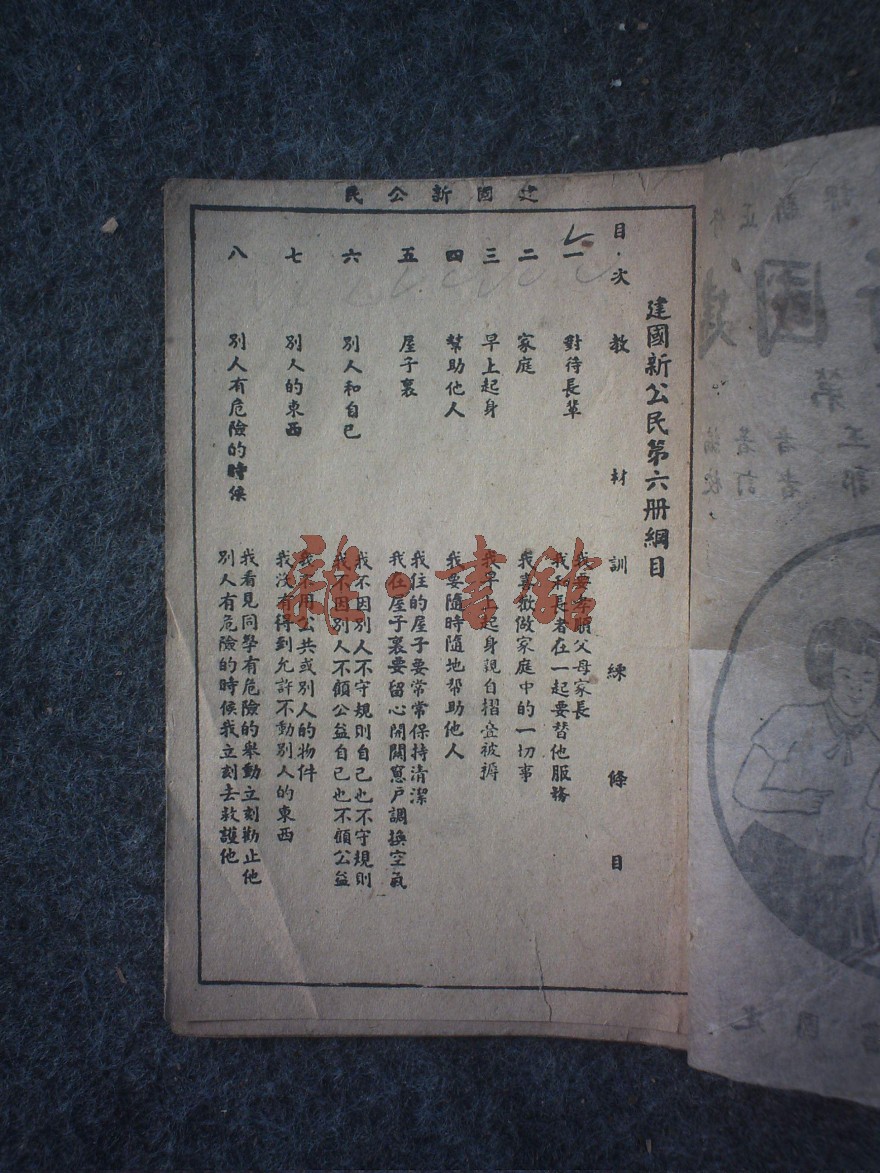 建國新公民
建國新公民第六册綱目
目次 教材 訓練條目
一 對待長輩 我要孝順父母家長
我和長者在一起要替他服務
二 家庭 我喜歡做家庭中的一切事
三 早上起身 我早上起身親自摺疊被褥
四 幫助他人 我要隨時隨地帮助他人
五 屋子裏 我住的屋子要常常保持清潔
我在屋子裏要留心開關窻戶調換空氣
六 別人和自己 我不因別人不守規則自己也不守規則
我不因別人不顧公益自己也不顧公益
七 別人的東西 我不用公共或別人的物件
我沒有得到允許不動別人的東西
八 別人有危險的時候 我看見同學有危險的舉動立刻勸止他
別人有危險的時候我立刻去救護他
雜·書館